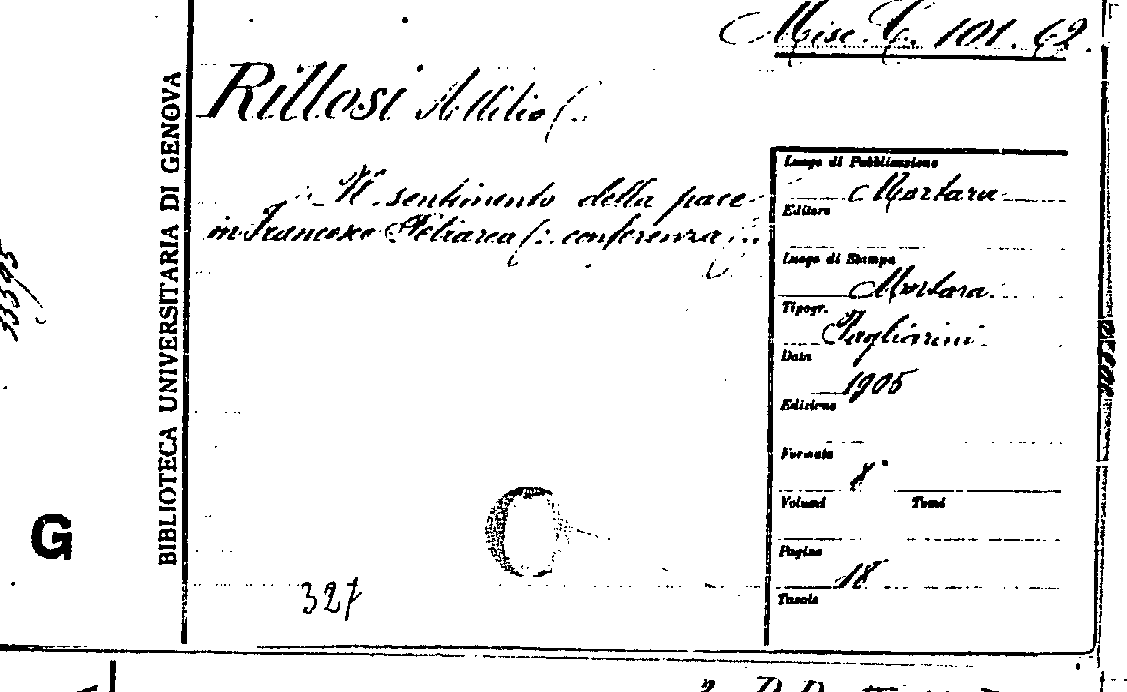 Misc. C. 101. 62.
Rillosi Attilio (..
Il sentimento della pace
in Francesco Petrarca (: conferenza :)..
BIBLIOTECA UNIVERSITARIA DI GENOVA
G
327
Luogo di Pubblicazione
Mortara
Editore
Luogo di Stampa
Mortara
Tipogr.
Pagliarini
Data
1905
Edizione
Formato
8°
Volumi Tomi
Pagine
18
Tavole